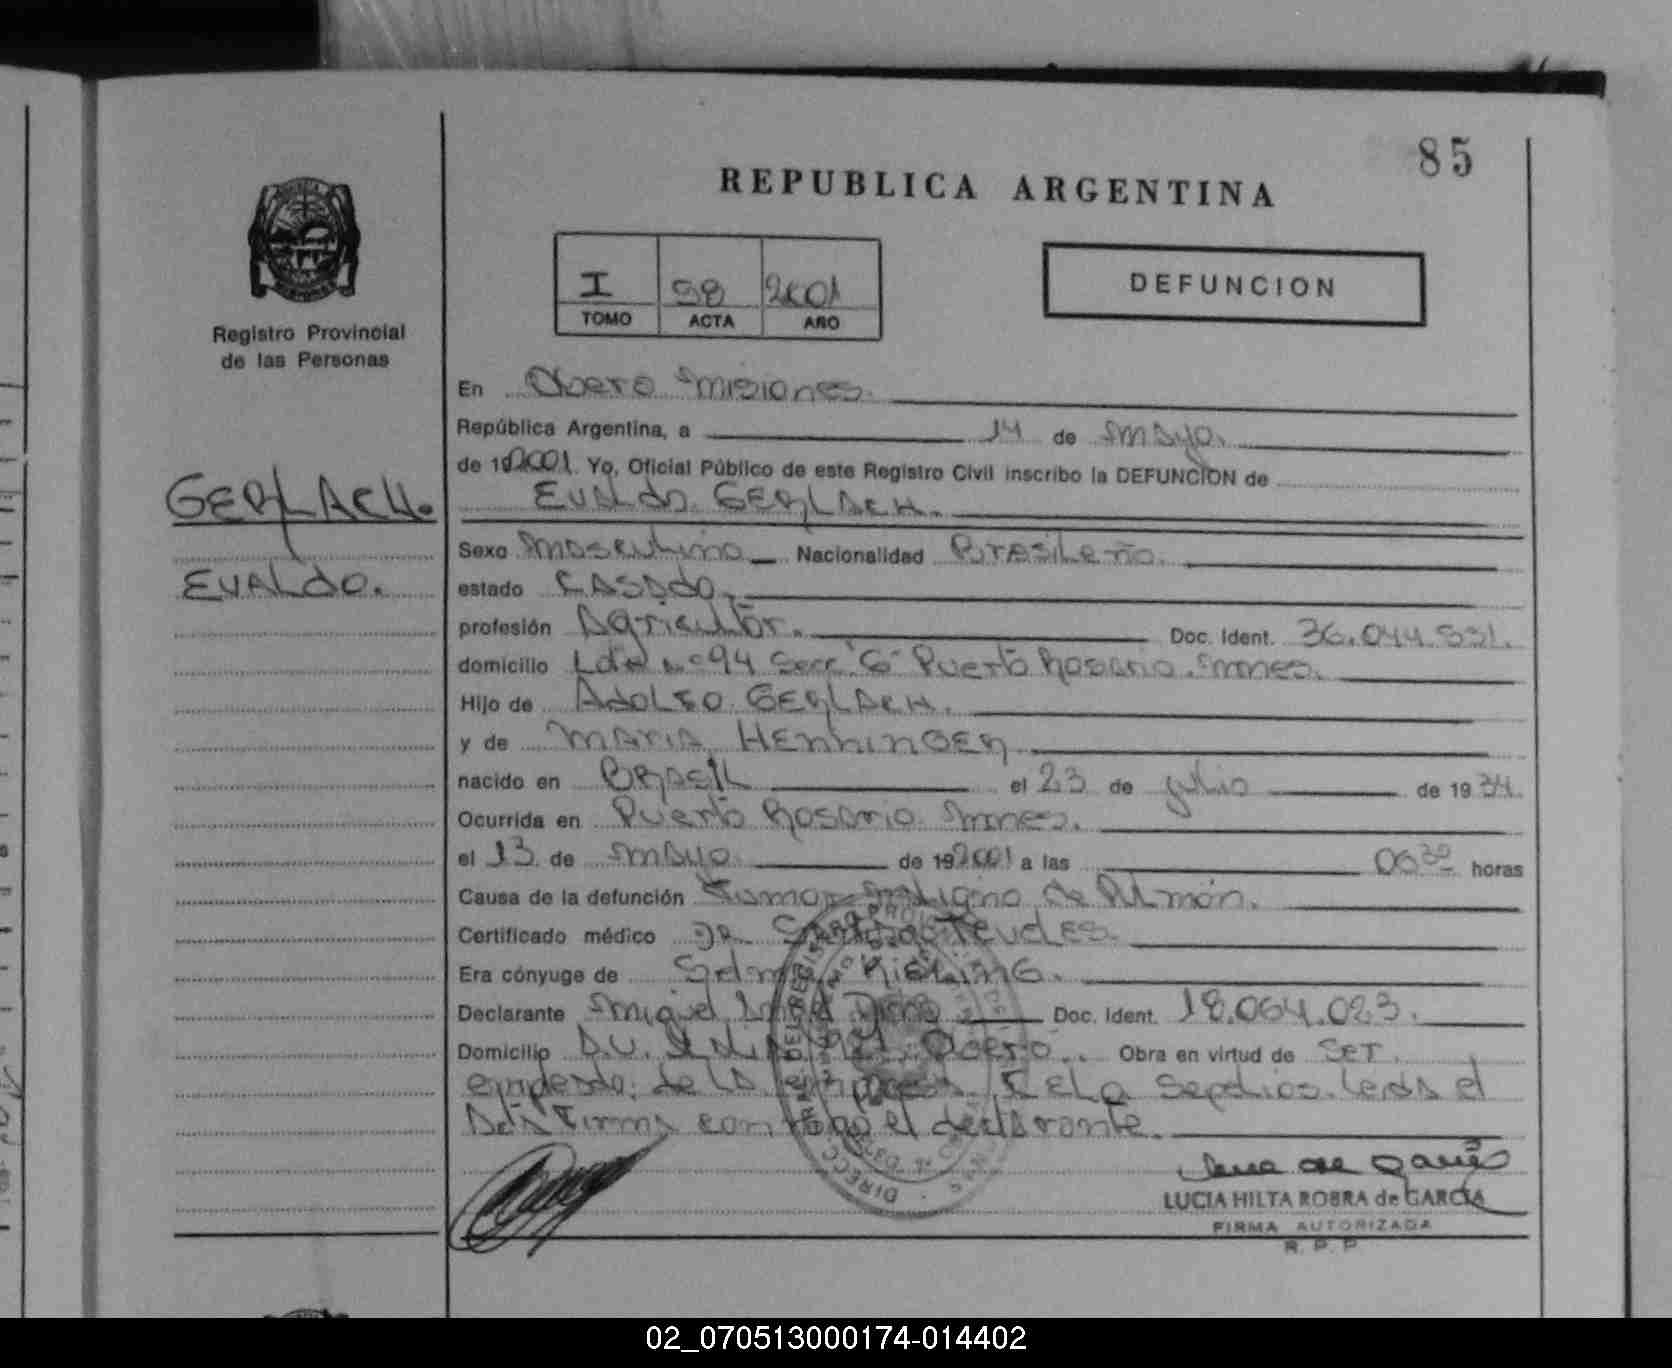 85
REPUBLICA ARGENTINA
I 98 2001
TOMO ACTA AÑO
DEFUNCION
Registro Provincial
de las Personas
En Obera Misiones.
República Argentina, a 14 de Mayo.
de 192001. Yo, Oficial Público de este Registro Civil inscribo la DEFUNCION de
EVALdo GERLACH.
GERLACH.
EVALdo.
Sexo Masculino Nacionalidad Brasileño.
estado CASADO.
profesión Agricultor. Doc. Ident. 36.044.551.
domicilio Lote Nº 94 Secc "G" Puerto Rosario. Mnes.
Hijo de ADOLFO GERLACH.
y de MARIA HENNINGER
nacido en BRASIL el 23 de julio de 1934.
Ocurrida en Puerto Rosario Mnes.
el 13 de Mayo. de 192001 a las 06 30 horas
Causa de la defunción Tumor Maligno de Pulmón.
Certificado médico DR.
Era cónyuge de Selma KIELING.
Declarante Miguel Doc. Ident. 18.064.023.
Domicilio Obera. Obra en virtud de ser
empleado de la empresa CELO Sepelios. Leida el
Acta Firma conmigo el declarante.
LUCIA HILTA ROBRA de GARCIA
FIRMA AUTORIZADA
R. P. P.
02_070513000174-014402